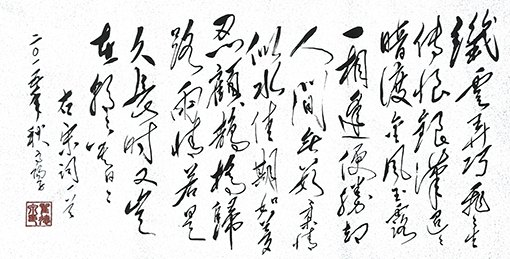 纖雲弄巧飛星
傳恨銀漢迢〻
暗渡金風玉露
一相逢便勝却
人間無數柔情
似水佳期如夢
忍顧鵲橋歸
路兩情若是
久長時又豈
在朝〻暮〻
右宋詞一首
二〇一 年秋